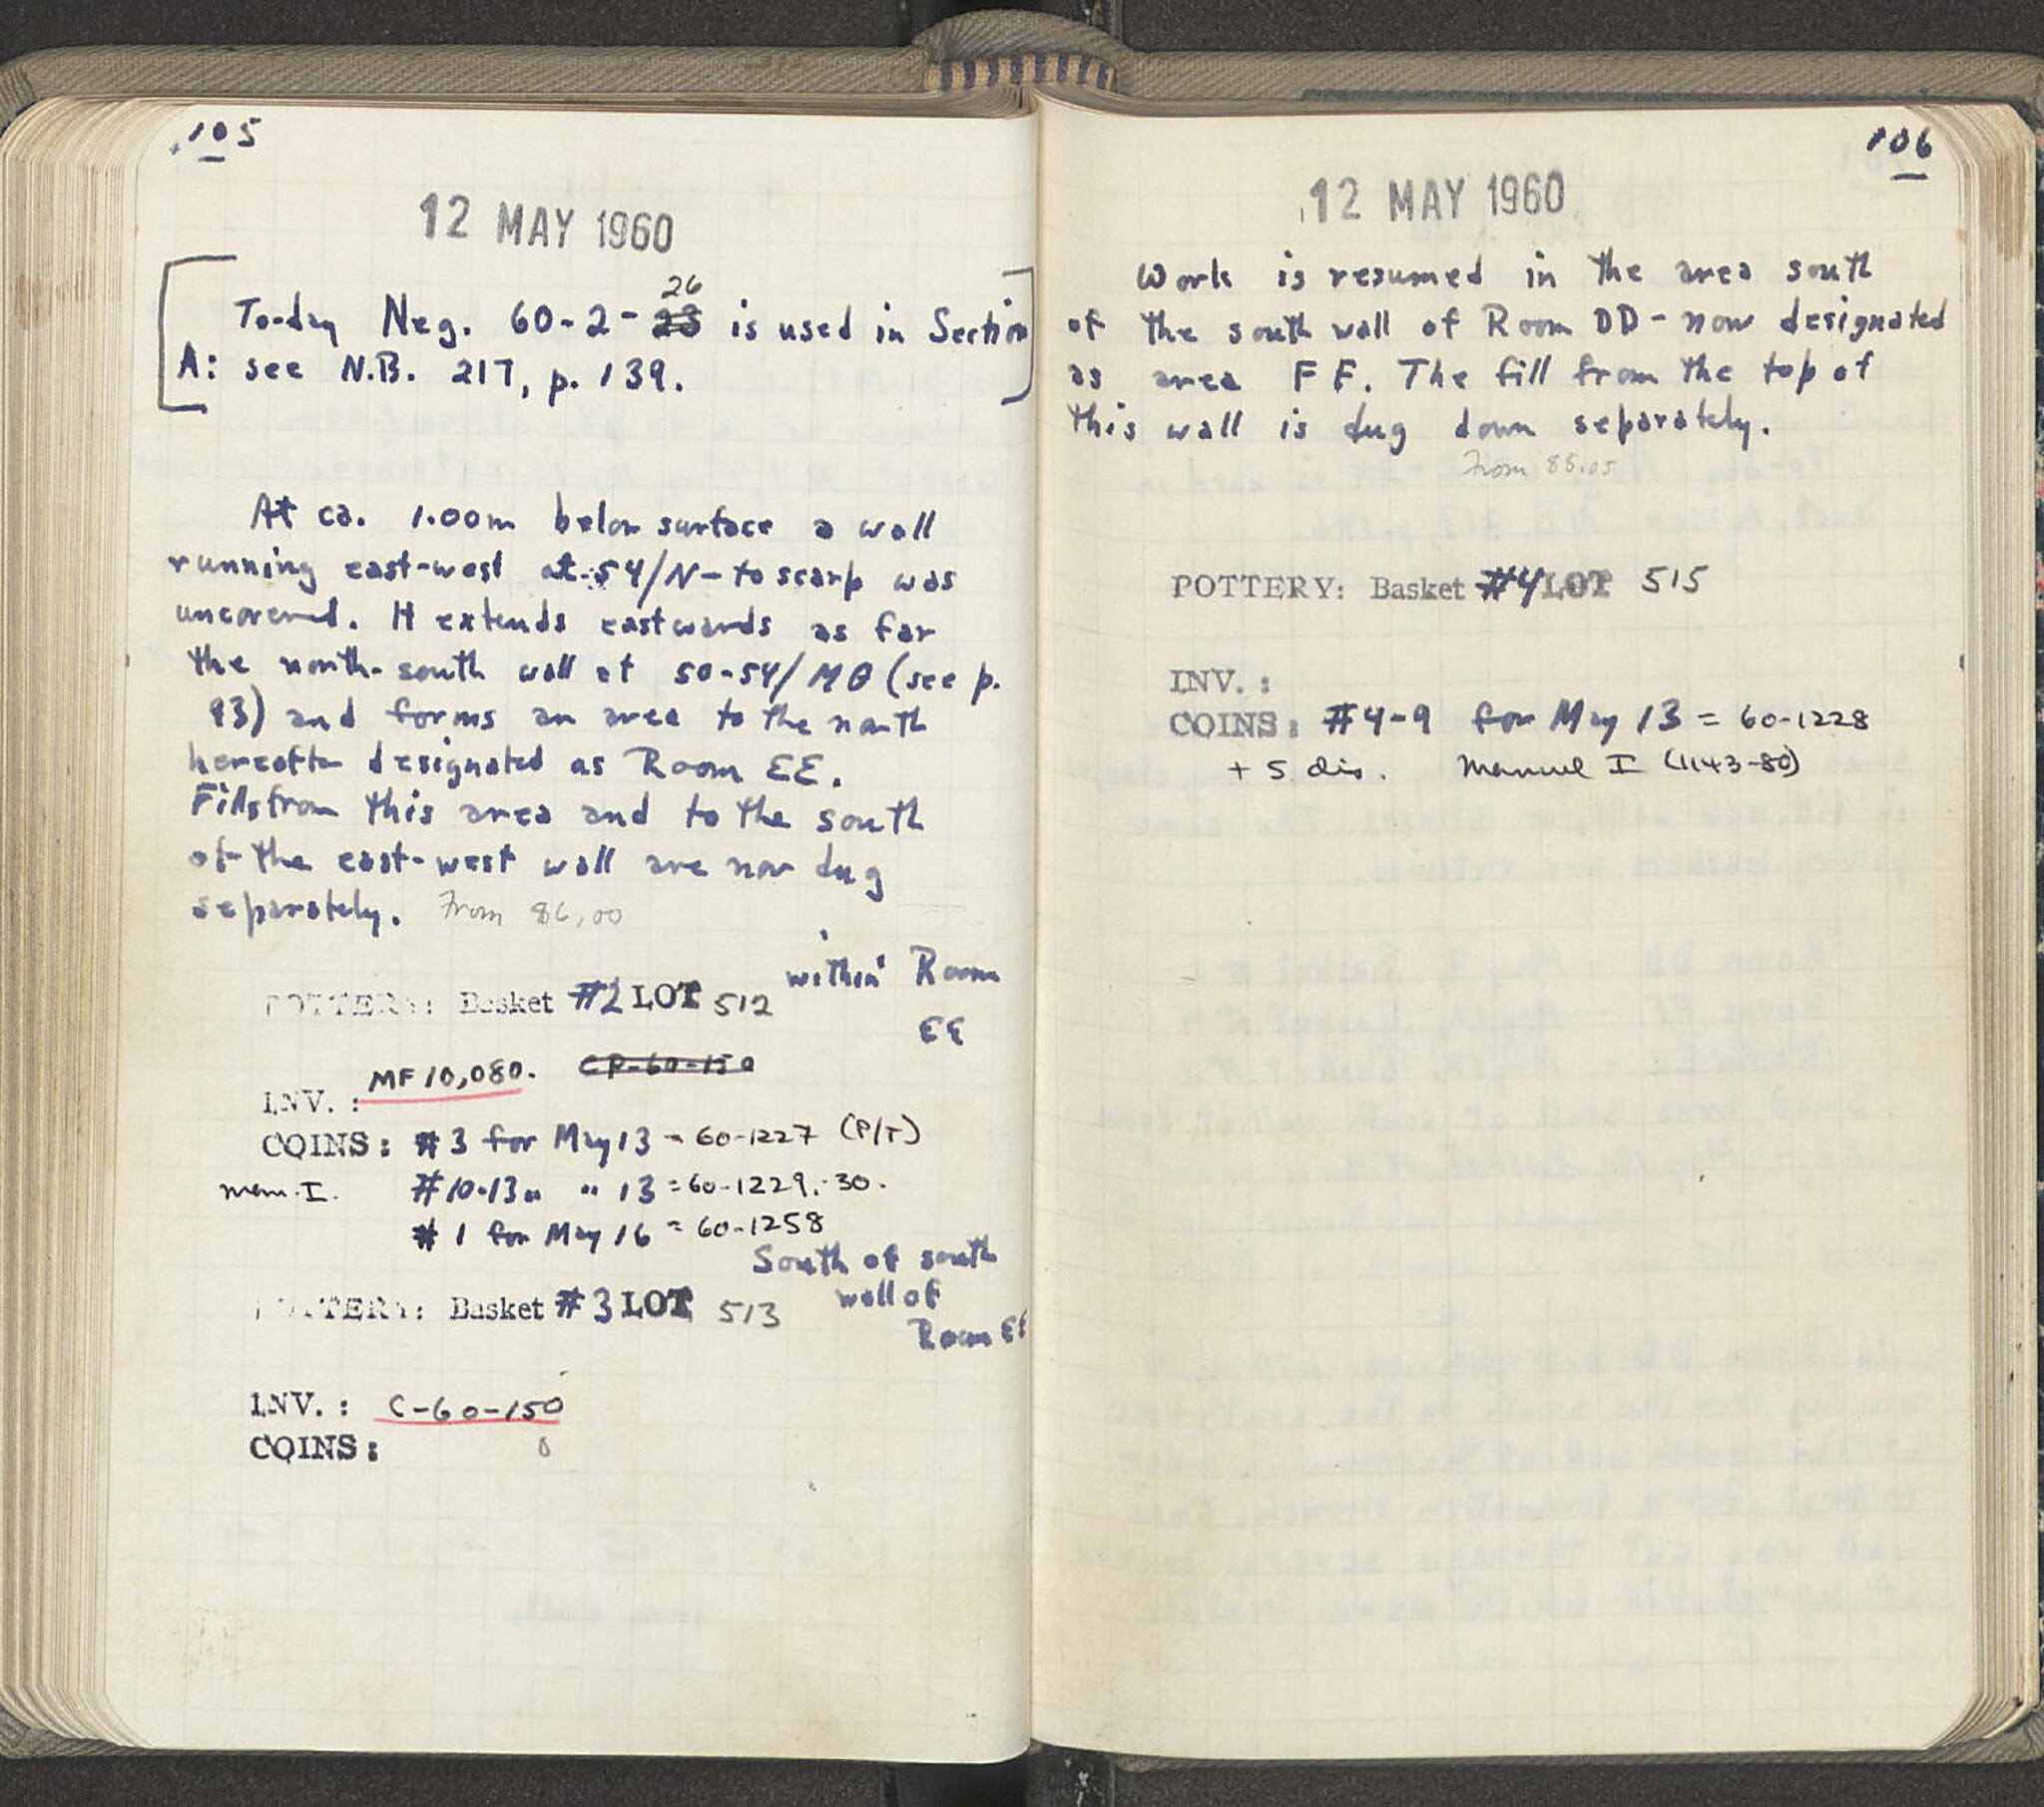 105
12 MAY 1960
26
To-day Neg. 60-2-28 is used in Section
A: see N.B. 217, p. 139.
At ca. 1.00m below surface a wall
running east-west at 54/N- to scarp was
uncovered. It extends eastwards as far
the north-south wall at 50-54/MΘ (see p.
93) and forms an area to the north
hereafter designated as Room EE.
Fills from this area and to the south
of the east-west wall are now dug
separately. From 86,00
within Room
EE
POTTERY: Basket #2 LOT 512
MF 10,080. CP-60-150
INV. :
COINS: #3 for May 13 = 60-1227 (P/T)
man. I. #10-13 " " 13 = 60-1229,-30.
#1 for May 16 = 60-1258
South of south
wall of
Room EE
POTTERY: Basket #3 LOT 513
INV. : C-60-150
COINS: 0
106
12 MAY 1960
Work is resumed in the area south
of the south wall of Room DD - now designated
as area FF. The fill from the top of
this wall is dug down separately.
From 85.05
POTTERY: Basket #4 LOT 515
INV. :
COINS: #4-9 for May 13 = 60-1228
+ 5 dis. Manuel I (1143-80)